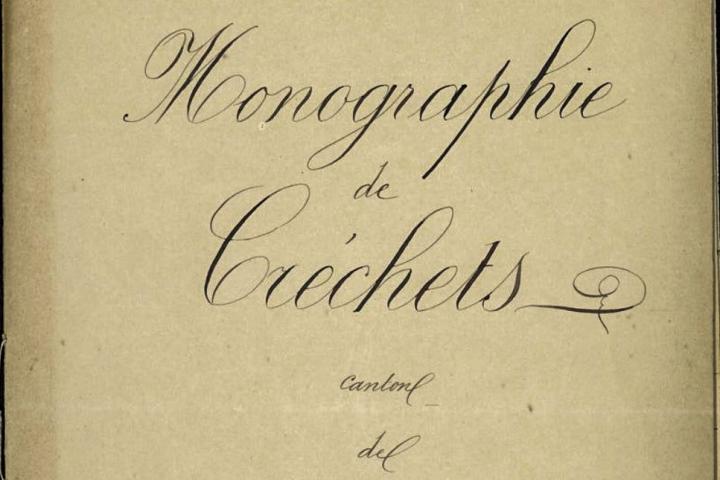 Monographie
de
Créchets
canton
de